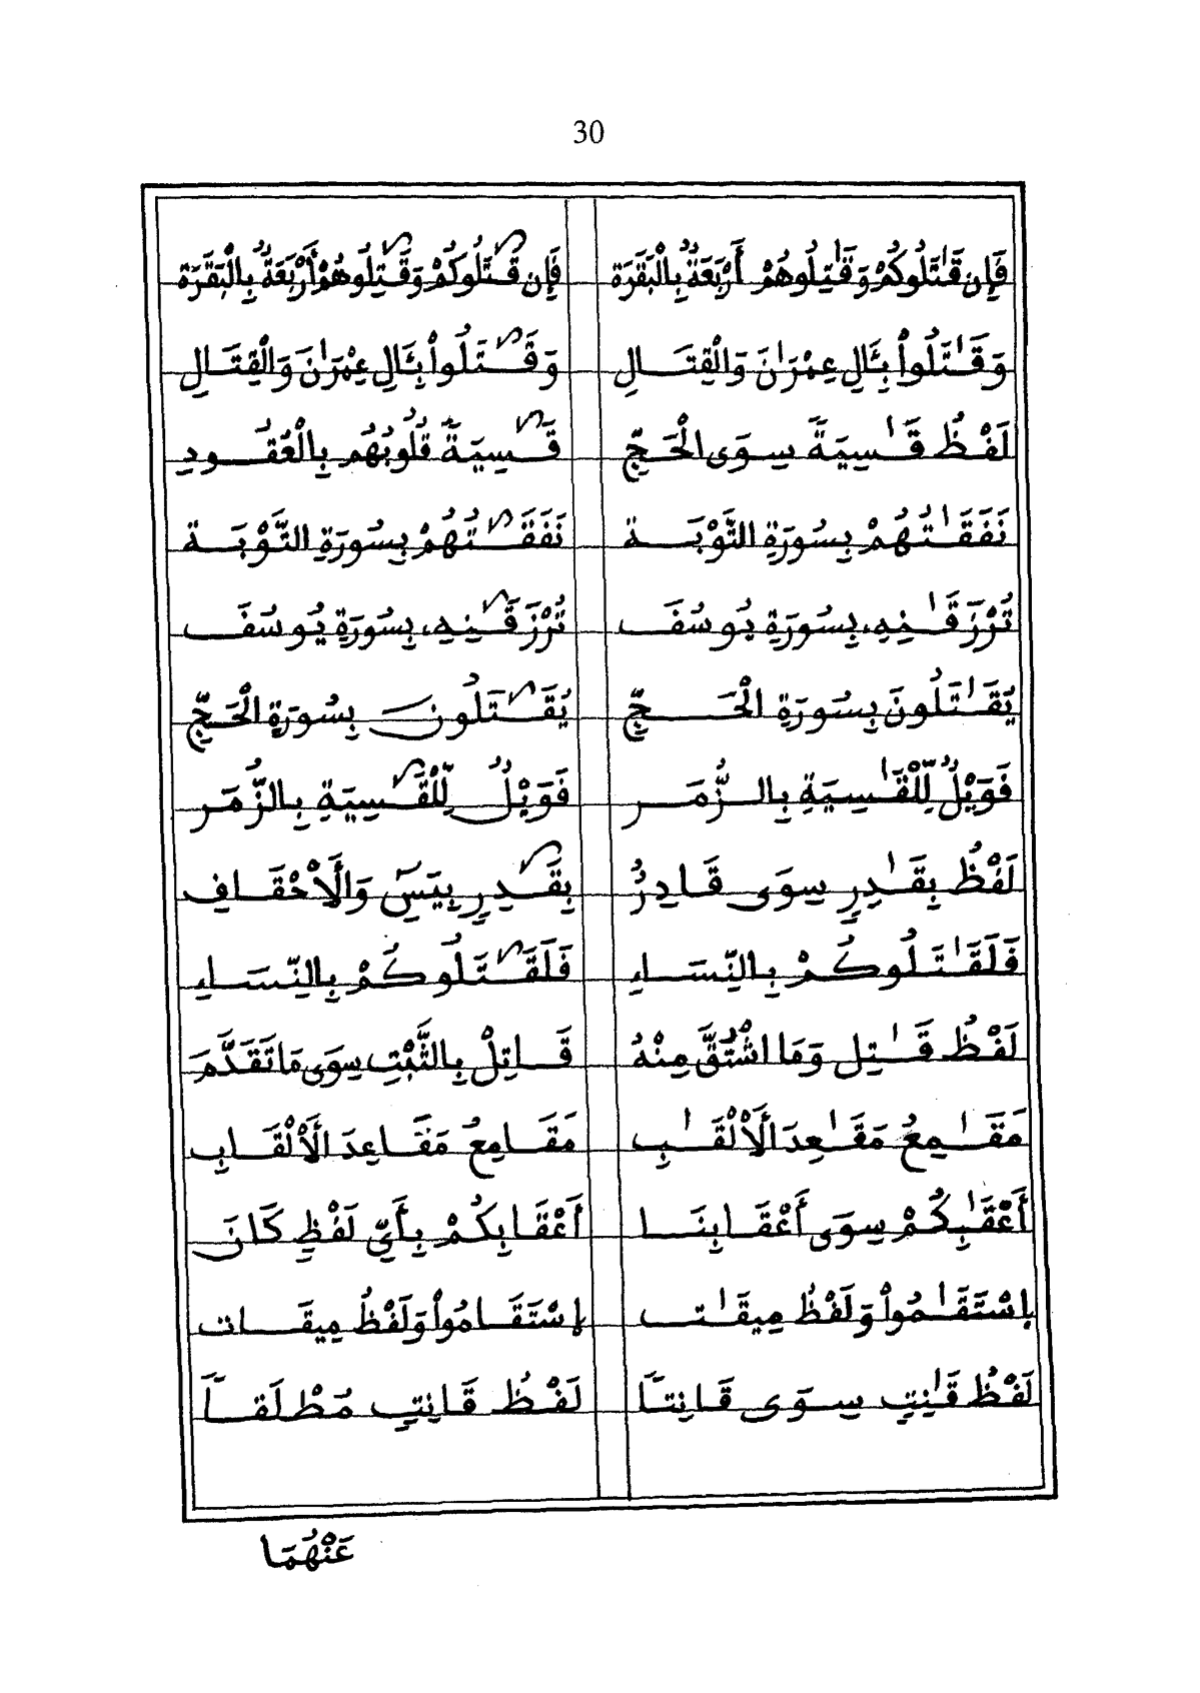 30
فَإِن قَٰتَلُوكُمْ وَقَٰتِلُوهُمْ أَرْبَعَةٌ بِالْبَقَرَة	فَإِن قَٰتَلُوكُمْ وَقَٰتِلُوهُمْ أَرْبَعَةٌ بِالْبَقَرَة
وَقَٰتَلُواْ بِـَٔالِ عِمْرَٰنَ وَالْقِتَــالِ	وَقَٰتَلُواْ بِـَٔالِ عِمْرَٰنَ وَالْقِتَــالِ
لَفْظُ قَٰسِيَةً سِوَى الْحَـجِّ	قَٰسِيَةً قُلُوبُهُم بِالْعُقُـودِ
نَفَقَٰتُهُمْ بِسُورَةِ التَّوْبَــة	نَفَقَٰتُهُمْ بِسُورَةِ التَّوْبَــة
تُرْزَقَٰنِهِ، بِسُورَةِ يُوسُفَ	تُرْزَقَٰنِهِ، بِسُورَةِ يُوسُفَ
يُقَٰتَلُونَ بِسُورَةِ الْحَــجِّ	يُقَٰتَلُونَ بِسُورَةِ الْحَـجِّ
فَوَيْلٌ لِّلْقَٰسِيَةِ بِالــزُّمَــر	فَوَيْلٌ لِّلْقَٰسِيَةِ بِالزُّمَـر
لَفْظُ بِقَٰدِرٍ سِوَى قَادِرُ	بِقَٰدِرٍ بِيَسٓ وَالْأَحْقَـافِ
فَلَقَٰتَلُوكُمْ بِالنِّسَـاءِ	فَلَقَٰتَلُوكُمْ بِالنِّسَـاءِ
لَفْظُ قَٰتِل وَمَا اشْتُقَّ مِنْهُ	قَـاتِلْ بِالثَّبْتِ سِوَى مَا تَقَدَّمَ
مَقَٰمِعُ مَقَٰعِدَ الْأَلْقَٰبِ	مَقَـامِعُ مَقَـاعِدَ الْأَلْقَـابِ
أَعْقَٰبِكُمْ سِوَى أَعْقَـابِنَـا	أَعْقَـابِكُمْ بِأَيِّ لَفْظٍ كَانَ
إِسْتَقَٰمُواْ وَلَفْظُ مِيقَٰت	إِسْتَقَـامُواْ وَلَفْظُ مِيقَـات
لَفْظُ قَٰنِتٍ سِـوَى قَـانِتاً	لَفْـظُ قَـانِتٍ مُطْلَقـاً
عَنْهُمَا